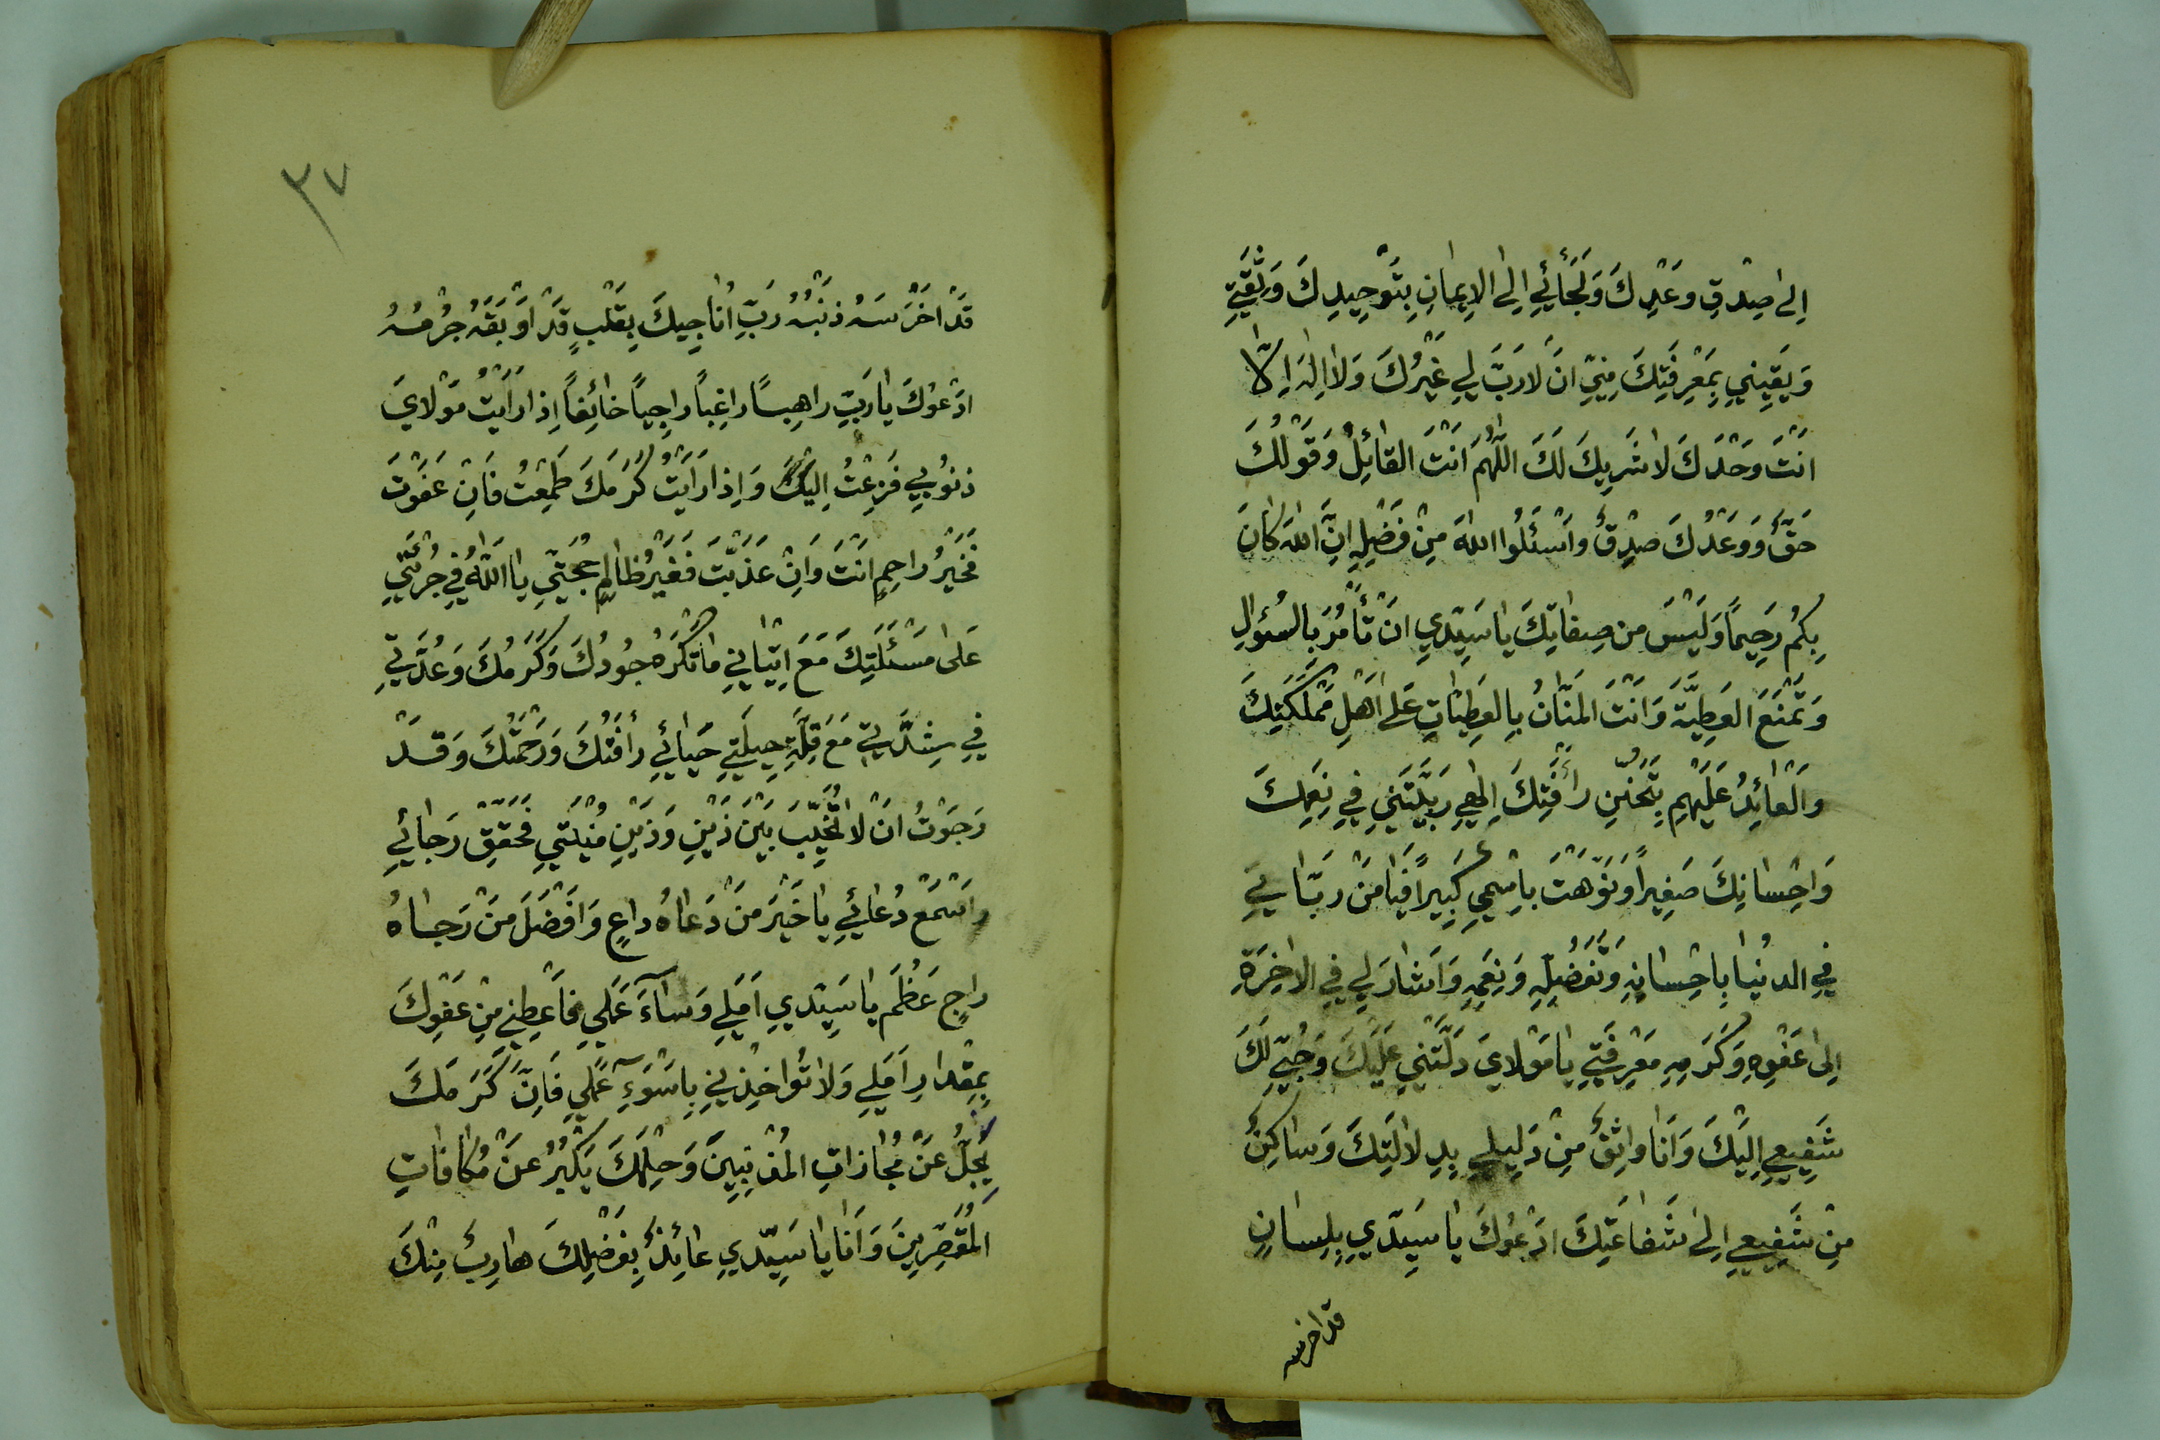 اِلىٰ صِدْقِ وَعْدِكَ وَلَجَائِي اِلَى الاِيمانِ بِتَوْحِيدِكَ وَثِقَتِي
وَيَقِينِي بِمَعْرِفَتِكَ مِنّي اَنْ لارَبَّ لِي غَيْرُكَ وَلا اِلٰهَ اِلّا
اَنْتَ وَحْدَكَ لا شَرِيكَ لَكَ اَللّٰهُمَّ اَنْتَ القائِلُ وَقَوْلُكَ
حَقٌّ وَوَعْدُكَ صِدْقٌ وَاسْئَلُوا اللّٰهَ مِنْ فَضْلِهِ اِنَّ اللّٰهَ كانَ
بِكُمْ رَحِيماً وَلَيْسَ مِن صِفاتِكَ يا سَيِّدِي اَنْ تَأْمُرَ بِالسُؤالِ
وَتَمْنَعَ العَطِيَّةَ وَاَنْتَ المَنّانُ بِالعَطِيّاتِ عَلىٰ اَهْلِ مَمْلَكَتِكَ
وَالْعائِدُ عَلَيْهِم بِتَحَنُّنِ رَأْفَتِكَ اِلهِي رَبَّيْتَنِي فِي نِعَمِكَ
وَاِحْسانِكَ صَغِيراً وَنَوَّهْتَ بِاسْمِي كَبِيراً فَيا مَنْ رَبّانِي
فِي الدنْيا بِاِحْسانِهِ وَتَفَضُّلِهِ وَنِعَمِهِ وَاَشارَ لِي فِي الاخِرَةِ
اِلىٰ عَفْوِهِ وَكَرَمِهِ مَعْرِفَتِي يا مَوْلايَ دَلَّتْنِي عَلَيْكَ وَحُبِّي لَكَ
شَفِيعِي اِلَيْكَ وَاَنَا واثِقٌ مِنْ دَلِيلِي بِدِلالَتِكَ وَساكِنٌ
مِنْ شَفِيعِي اِلىٰ شَفاعَتِكَ اَدْعُوكَ يا سَيِّدِي بِلِسانٍ
قد اخرسه
٣٧
قَدْ اَخْرَسَهُ ذَنْبُهُ رَبِّ اُناجِيكَ بِقَلْبٍ قَدْ اَوْبَقَهُ جُرْمُهُ
اَدْعُوكَ يا رَبِّ راهِباً راغِباً راجِياً خائِفاً اِذا رَاَيْتُ مَوْلايَ
ذنُوبِي فَزِعْتُ اِلَيْكَ وَاِذا رَاَيْتُ كَرَمَكَ طَمِعْتُ فَاِنْ عَفَوْتَ
فَخَيْرُ راحِمٍ اَنْتَ وَاِنْ عَذَّبْتَ فَغَيْرُ ظالِمٍ حُجَّتِي يا اَللّٰهُ فِي جُرْئَتِي
عَلىٰ مَسْئَلَتِكَ مَعَ اِتْيانِي ما تَكْرَهُ جُودُكَ وَكَرَمُكَ وَعُدَّتِي
فِي شِدَّتِي مَعَ قِلَّةِ حِيلَتِي حَيائِي رأفَتُكَ وَرَحْمَتُكَ وَقَدْ
رَجَوْتُ اَنْ لا تُخَيِّبَ بَيْنَ ذَيْنِ وَذَيْنِ مُنْيَتِي فَحَقِّقْ رَجائِي
وَاسْمَعْ دُعائِي يا خَيْرَ مَنْ دَعاهُ داعٍ وَاَفْضَلَ مَنْ رَجاهُ
راجٍ عَظُمَ يا سَيِّدِي اَمَلِي وَساءَ عَمَلِي فَاَعْطِنِي مِنْ عَفْوِكَ
بِمِقْدارِ اَمَلِي وَلا تُواخِذْنِي بِاَسْوَءِ عَمَلِي فَاِنَّ كَرَمَكَ
يَجِلُّ عَنْ مُجازاتِ المُذْنِبِينَ وَحِلْمَكَ يَكْبُرُ عَنْ مُكافاتِ
المُقَصِّرِينَ وَاَنَا يا سَيِّدِي عائِذٌ بِفَضْلِكَ هارِبٌ مِنْكَ